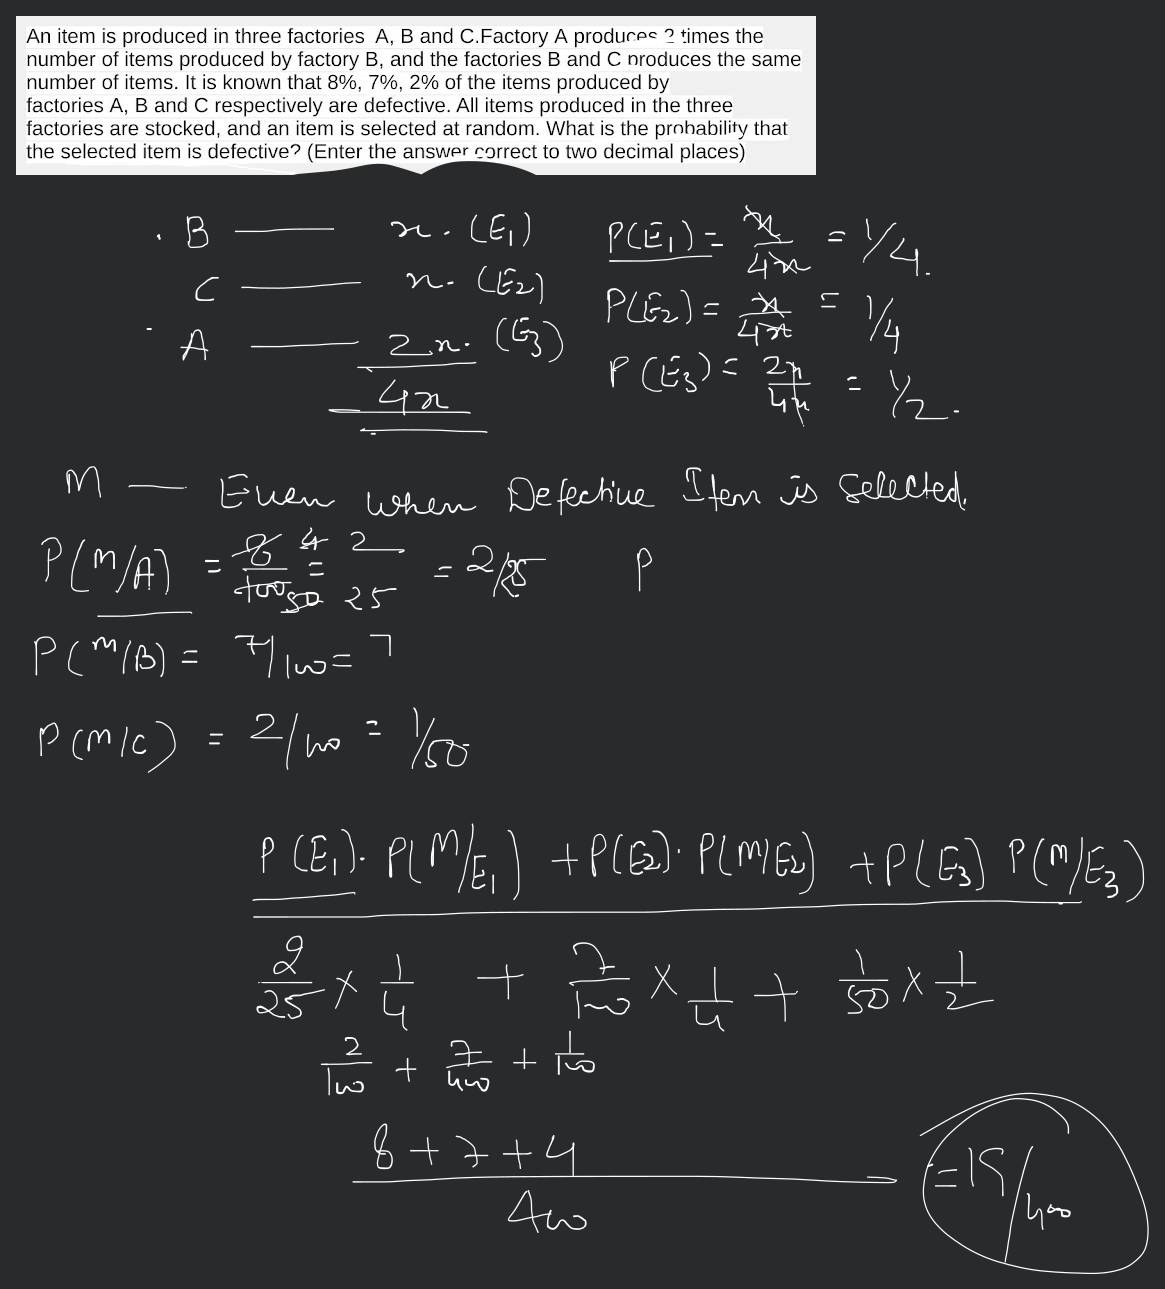 An item is produced in three factories A, B and C.Factory A produces 2 times the
number of items produced by factory B, and the factories B and C produces the same
number of items. It is known that 8%, 7%, 2% of the items produced by
factories A, B and C respectively are defective. All items produced in the three
factories are stocked, and an item is selected at random. What is the probability that
the selected item is defective? (Enter the answer correct to two decimal places)
. B — x. (E1) P(E1) = x/4x = 1/4.
C — x. (E2) P(E2) = x/4x = 1/4
A — 2x. (E3) P(E3) = 2x/4x = 1/2.
4x
M — Even when Defective Item is Selected.
P(M/A) = 8/100 = 4/50 2/25 = 2/25 P
P(M/B) = 7/100 = 7
P(M/C) = 2/100 = 1/50
P(E1). P(M/E1) + P(E2). P(M/E2) + P(E3) P(M/E3)
2/25 × 1/4 + 7/100 × 1/4 + 1/50 × 1/2
2/100 + 7/400 + 1/100
8+7+4/400 = 19/400